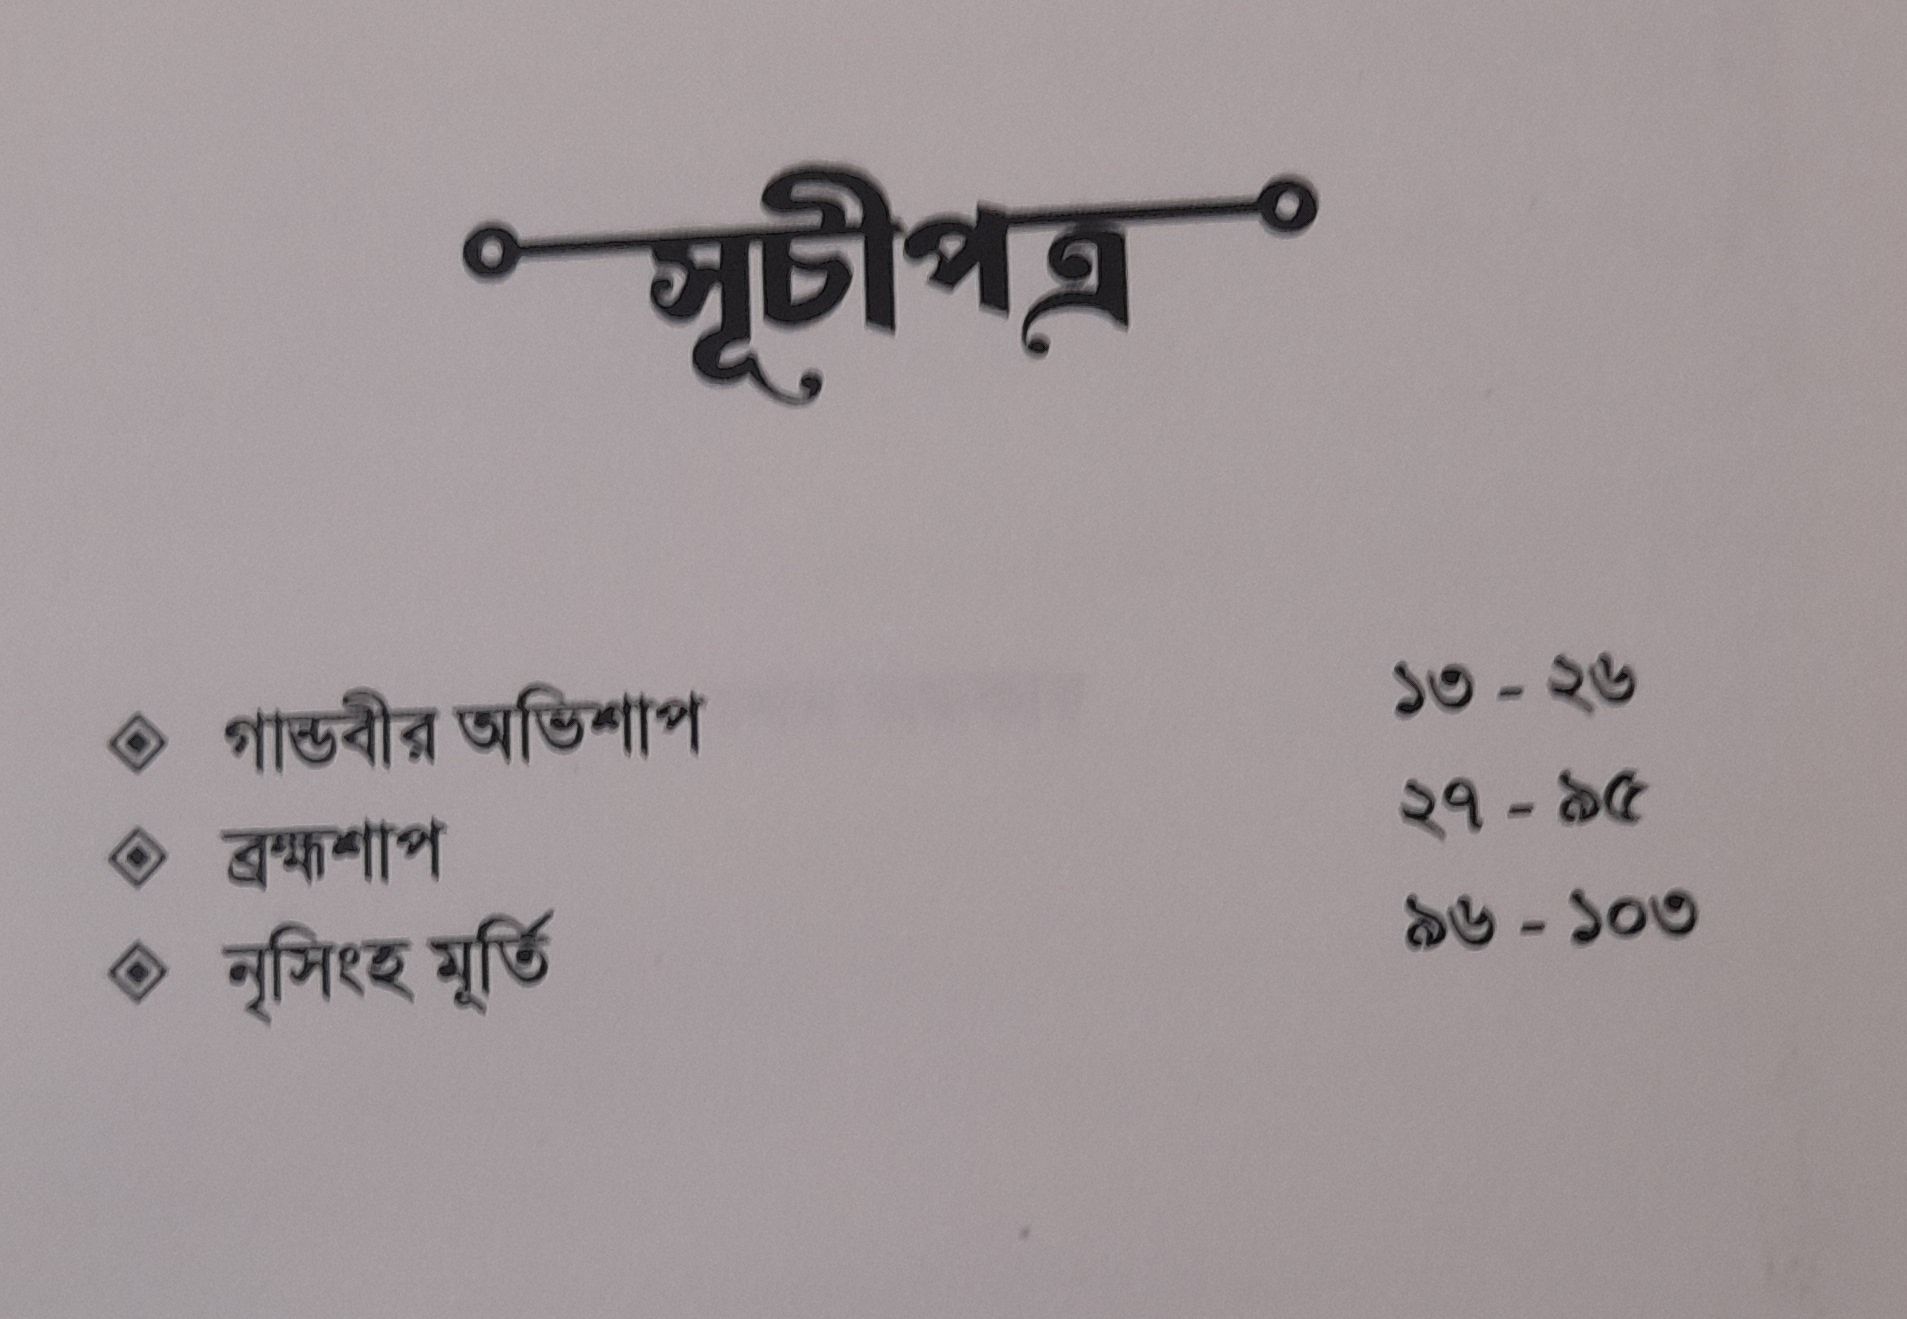 সূচীপত্র
গান্ডবীর অভিশাপ ১৩ - ২৬
ব্রহ্মশাপ ২৭ - ৯৫
নৃসিংহ মূর্তি ৯৬ - ১০৩